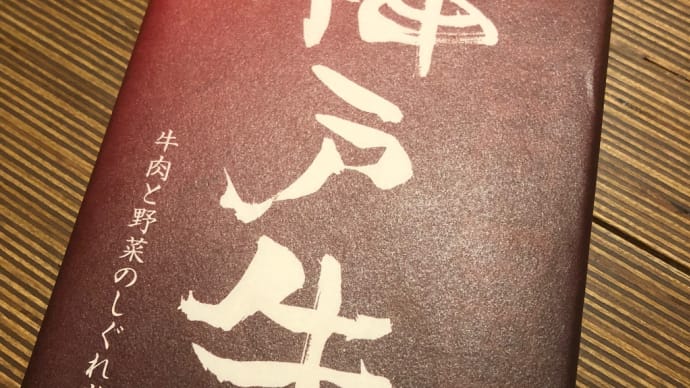 戸牛
牛肉と野菜のしぐれ